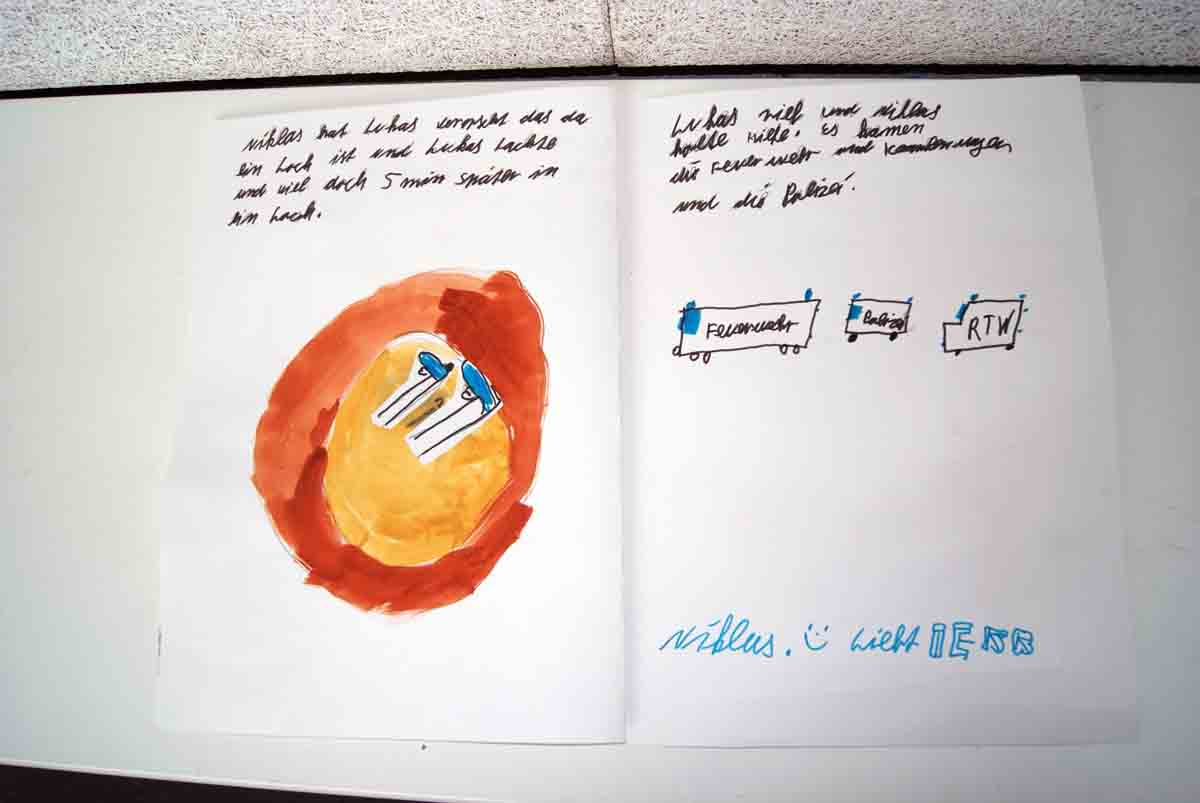 Niklas hat Lukas vorarscht das da
ein Loch ist und Lukas Lachte
und viel doch 5 min später in
ein Loch.
Lukas rief und Niklas
holte Hilfe. Es kamen
die Feuerwehr und
und die Polizei.
Feuerwehr
Polizei
RTW
Niklas. Liebt